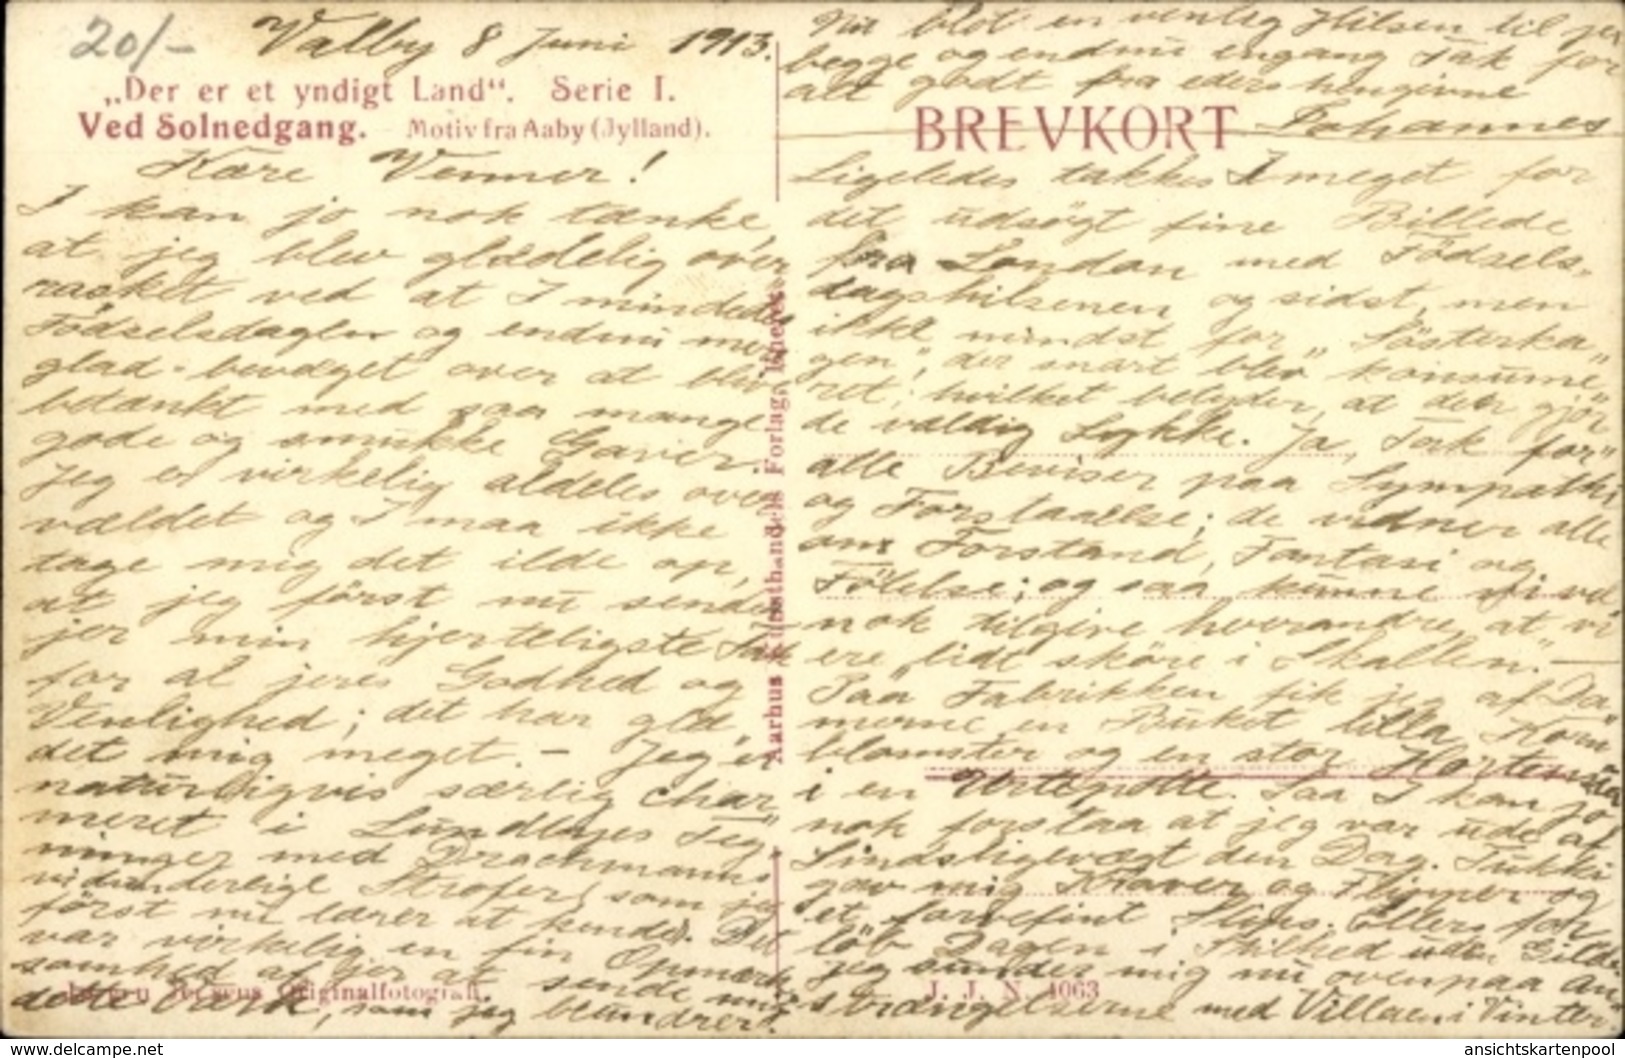 20/-
Valby 8 Juni 1913.
„Der er et yndigt Land“. Serie I.
Ved Solnedgang. Motiv fra Aaby (Jylland).
Kære Venner!
I kan jo nok tænke,
at jeg blev glædelig over
rasket ved at I mindedes
Födselsdagen og endnu mer
glad-bevæget over at blive
betænkt med saa mange
gode og smukke Gaver.
Jeg er virkelig aldeles over
vældet og I maa ikke
tage mig det ilde op,
at jeg först nu sender
jer min hjerteligste Tak
for al jeres Godhed og
Venlighed; det har glæ"
det mig meget. - Jeg er
naturligvis særlig char"
meret i Teg"
ninger med Drachmanns
vidunderlige Strofer, som jeg
först nu lærer at kende. Det
var virkelig en fin Opmærk
somhed af jer at sende mig
dette Værk, som jeg beundrer!
Originalfotografi.
Aarhus Kunsthandels Forlag,
Nu blot en venlig Hilsen til jer
begge og endnu engang Tak for
alt godt fra eders hengivne
Johannes
BREVKORT
Ligeledes takkes I meget for
det udsögt fine Billede
fra London med Födsels-
dagshilsenen og sidst, men
ikke mindst for „Sösterka"
gen", der snart blev konsume"
ret, hvilket betyder, at den gjor"
de vældig Lykke. Ja, Tak for"
alle Beviser paa Sympathi
og Forstaaelse; de vidner alle
om Forstand, Fantasi og
Fölelse; og saa kunne vi vel
nok tilgive hverandre, at vi
ere „lidt sköre i Skallen". —
Paa Fabrikken fik jeg af Da"
merne en Buket lilla Korn
blomster og en stor Hortensia
i en Urtepotte. Saa I kan jo
nok forstaa at jeg var ude af
Sindsligevægt den Dag. Tukki
gav mig Kraver og Flipper og
et farvefint Slips. Ellers for
löb Dagen i Stilhed uden Gilde.
jeg sunder mig nu ovenpaa An"
strængelserne med Villaen i Vinter.
J. J. N. 4063
ansichtskartenpool
https://www.delcampe.net